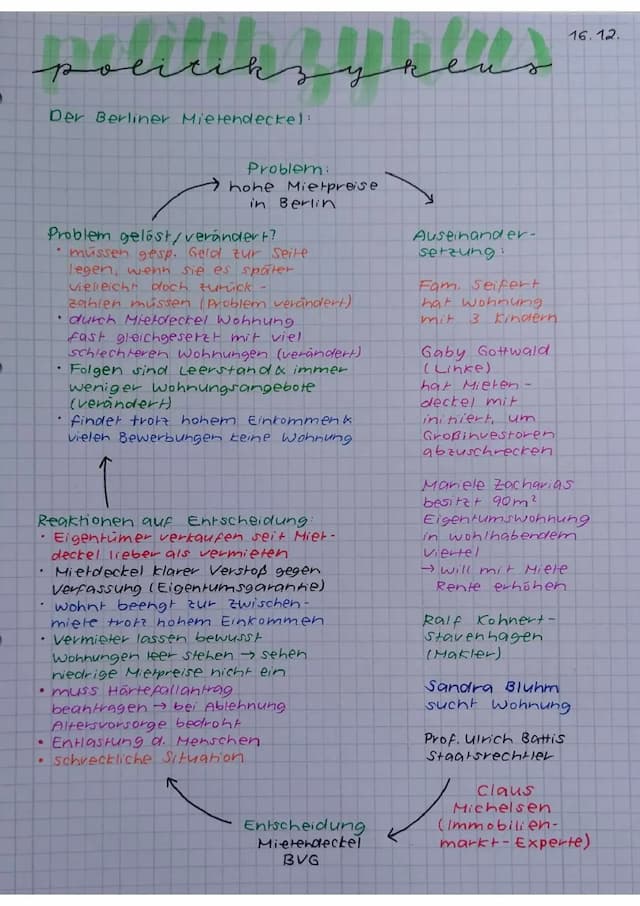 politikzyklus
16.12.
politikzyklus
Der Berliner Mietendeckel:
Problem:
hohe Mietpreise
in Berlin
Auseinander-
setzung:
Fam. Seifert
hat Wohnung
mit 3 Kindern
Gaby Gottwald
(Linke)
hat Mieten-
deckel mit
initiiert, um
Großinvestoren
abzuschrecken
Mariele Zacharias
besitzt 90m²
Eigentumswohnung
in wohlhabendem
Viertel
→ will mit Miete
Rente erhöhen
Ralf Kohnert-
Stavenhagen
(Makler)
Sandra Bluhm
sucht Wohnung
Prof. Ulrich Battis
Staatsrechtler
Claus
Michelsen
(Immobilien-
markt-Experte)
Entscheidung
Mietendeckel
BVG
Reaktionen auf Entscheidung:
• Eigentümer verkaufen seit Miet-
deckel lieber als vermieten
• Mietdeckel klarer Verstoß gegen
Verfassung (Eigentumsgarantie)
• wohnt beengt zur zwischen-
miete trotz hohem Einkommen
• Vermieter lassen bewusst
Wohnungen leer stehen → sehen
niedrige Mietpreise nicht ein
• muss Härtefallantrag
beantragen → bei Ablehnung
Altersvorsorge bedroht
• Entlastung d. Menschen
• schreckliche Situation
Problem gelöst/verändert?
• müssen gesp. Geld zur Seite
legen, wenn sie es später
vielleicht doch zurück-
zahlen müssen (Problem verändert)
• durch Mietdeckel Wohnung
fast gleichgesetzt mit viel
schlechteren Wohnungen (verändert)
• Folgen sind Leerstand & immer
weniger Wohnungsangebote
(verändert)
• findet trotz hohem Einkommen &
vielen Bewerbungen keine Wohnung